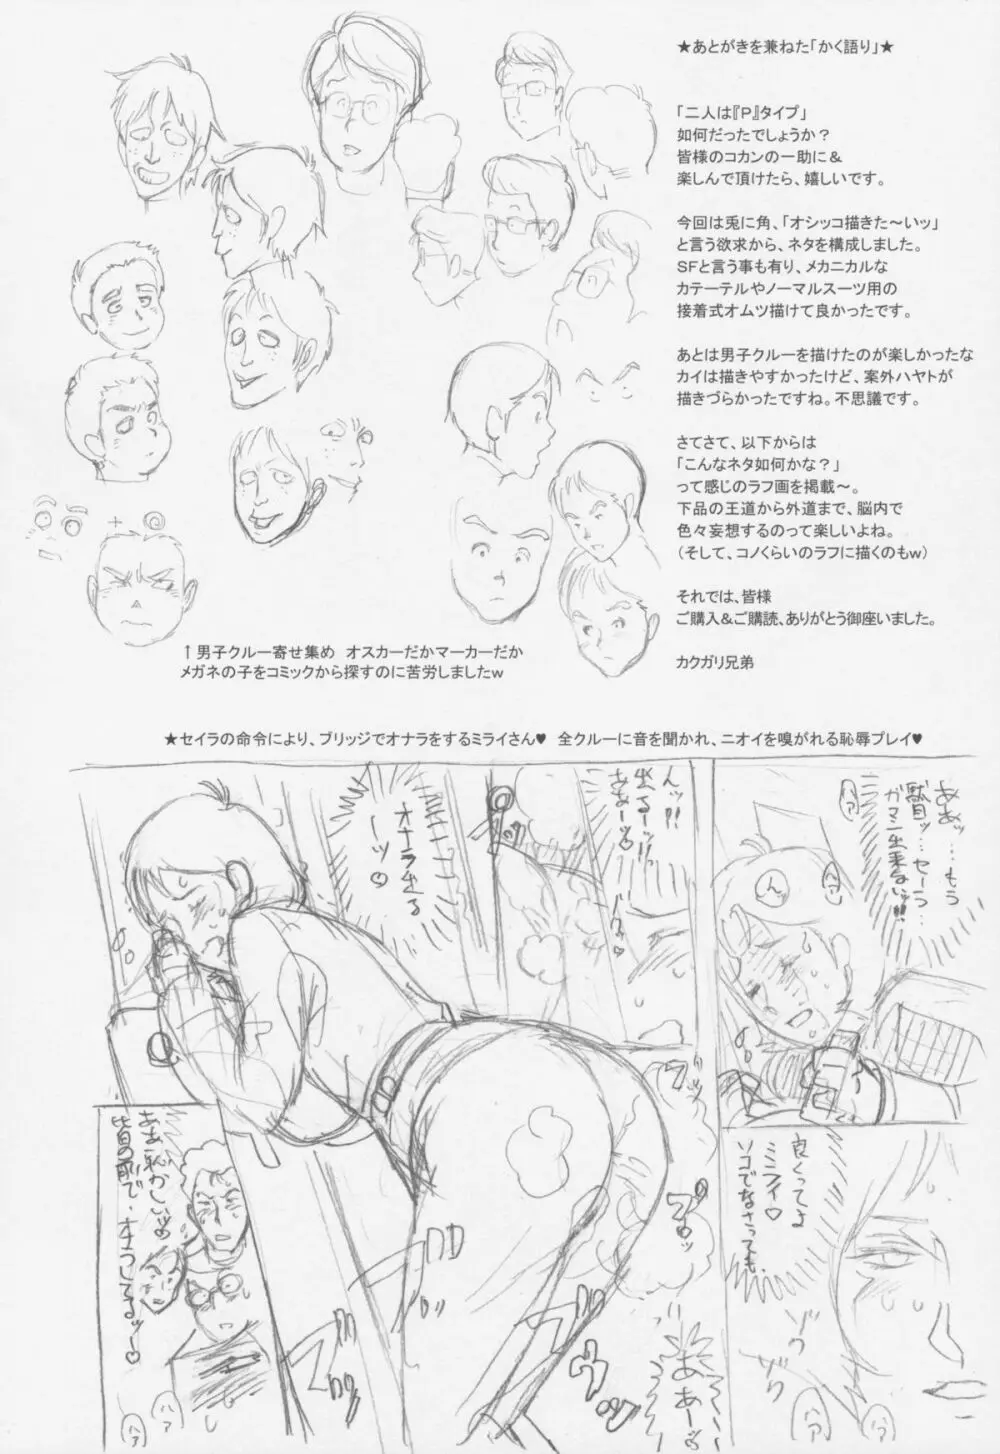 ★あとがきを兼ねた「かく語り」★
「二人は『P』タイプ」
如何だったでしょうか？
皆様のコカンの一助に＆
楽しんで頂けたら、嬉しいです。
今回は兎に角、「オシッコ描きた～いッ」
と言う欲求から、ネタを構成しました。
SFと言う事も有り、メカニカルな
カテーテルやノーマルスーツ用の
接着式オムツ描けて良かったです。
あとは男子クルーを描けたのが楽しかったな
カイは描きやすかったけど、案外ハヤトが
描きづらかったですね。不思議です。
さてさて、以下からは
「こんなネタ如何かな？」
って感じのラフ画を掲載～。
下品の王道から外道まで、脳内で
色々妄想するのって楽しいよね。
（そして、コノくらいのラフに描くのもw）
それでは、皆様
ご購入＆ご購読、ありがとう御座いました。
カクガリ兄弟
↑男子クルー寄せ集め　オスカーだかマーカーだか
メガネの子をコミックから探すのに苦労しましたw
★セイラの命令により、ブリッジでオナラをするミライさん♥　全クルーに音を聞かれ、ニオイを嗅がれる恥辱プレイ♥
ああッ…もう
駄目ッ…セーラ…
ガマン出来ないッ!!
ハァ
ハァ
ん
んッ!!
出るーッ!!
あぁーッ
オナラ出る
～ッ♡
良くってよ
ミライ♡
ソコでなさっても
ゾク
ゾク
ああ恥かしいッ
皆の前で
プゥッ
プピッ
ああーッ
ハァ
ハァ
ハァ
ハァ